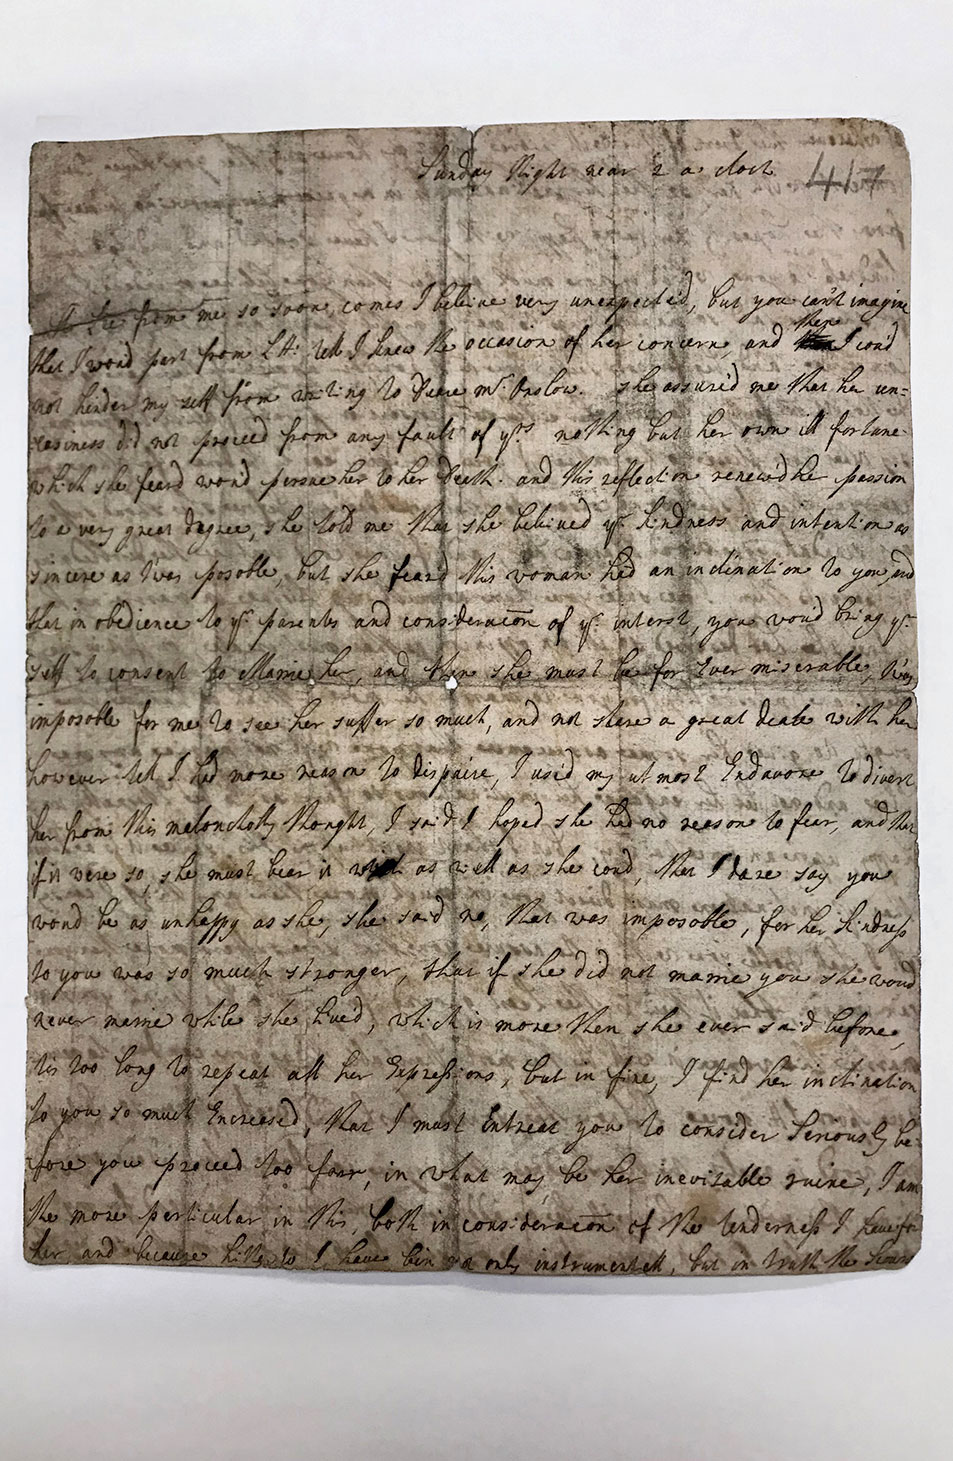 Sunday Night near 2 a clock
417
from me so soon, comes I beleive very unexpected, but you can't imagine
then
that I wou'd part from LA: tell I knew the occasion of her concern, and I cou'd
not hinder my self from writing to Deere Mr. Onslow. she assured me that her un=
easiness did not proceed from any fault of yrs nothing but her own ill fortune
which she fear'd wou'd persue her to her Death. and this reflection renew'd her passion
to a very great degree, she told me that she beleived yr kindness and intention as
sincere as t'was posoble, but she fear'd this woman had an inclination to you, and
that in obedience to yr. parents and consideracōn of yr. interst, you wou'd bring yr.
self to consent to Marrie her, and then she must be for Ever miserable, t'was
imposoble for me to see her suffer so much, and not share a great deale with her
however tell I had more reason to dispaire, I used my utmost Endavore to divert
her from this meloncholly thought, I said I hoped she had no reason to fear, and that
if it were so, she must bear it as well as she coud, that I dare say you
woud be as unhappy as she, she said no, that was imposoble, for her kindness
to you was so much stronger, that if she did not marrie you she woud
never marrie while she live'd, which is more then she ever said before,
tis too long to repeat all her Expressions, but in fine, I find her inclination
to you so much Encreased, that I must Entreat you to consider Seriously be-
fore you proceed too farr, in what may be her inevitable ruine, I am
the more perticular in this, both in consideracōn of the tenderness I have for
her and because hitherto I have bin not only instrumentall, but in truth the